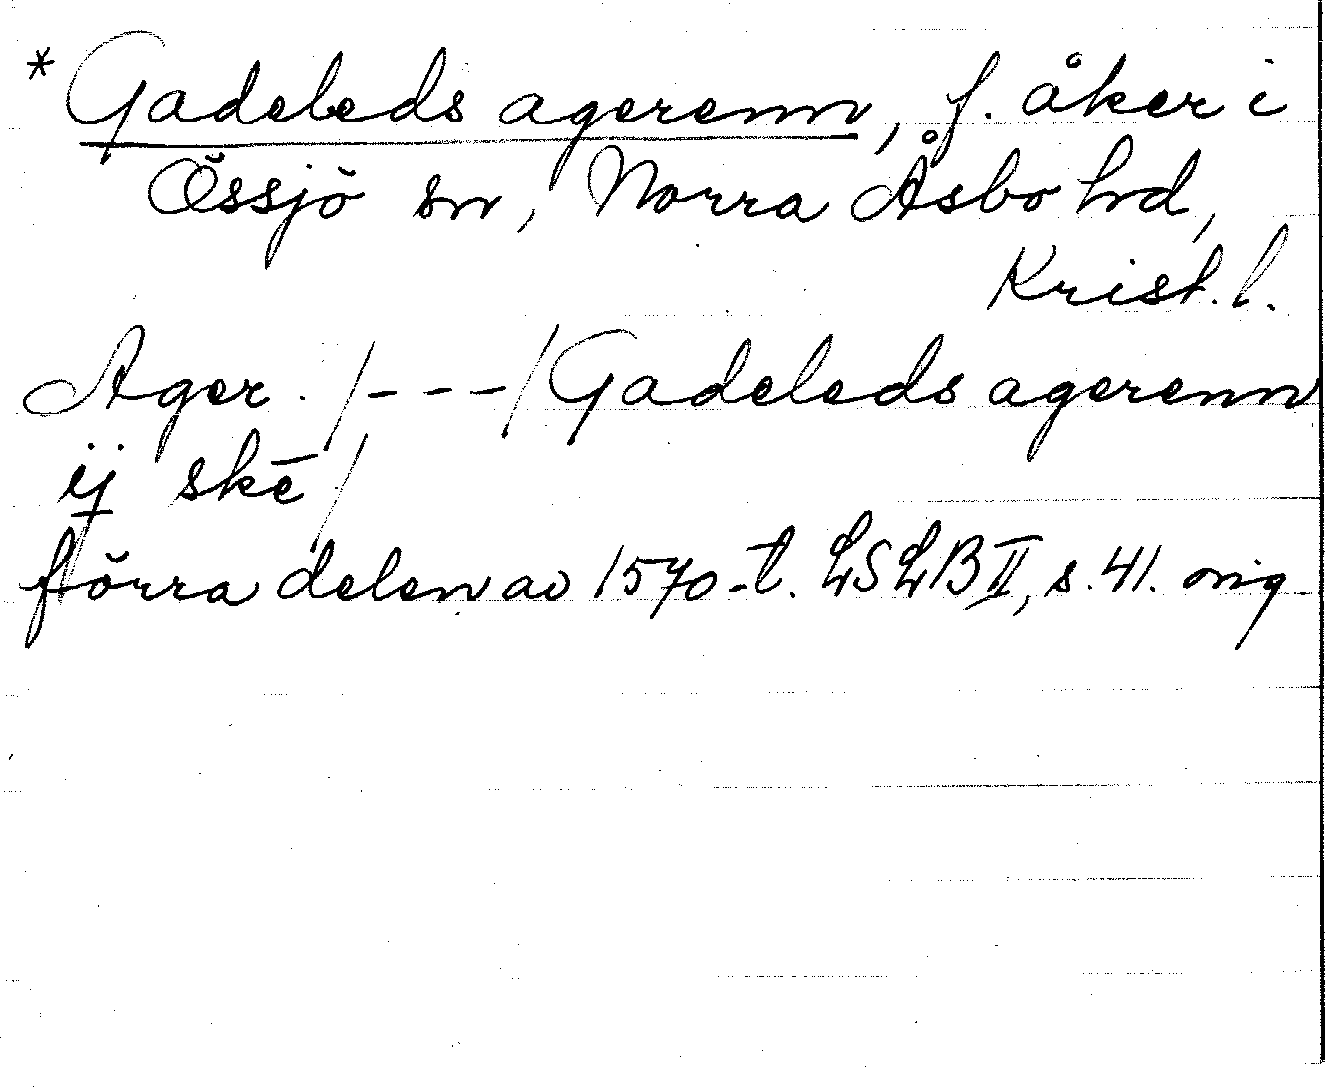 * Gadeleds agerenn, f. åker i
Össjö sn, Norra Åsbo hd,
Krist. l.
Ager. /---/ Gadeleds agerenn
ij skē/
förra delen av 1570-t. LSLB II, s. 41. orig